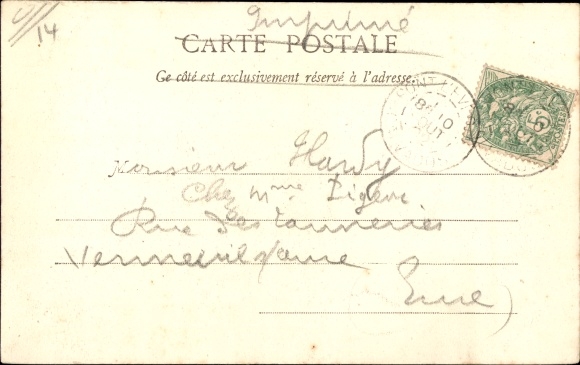 14
Imprimé
CARTE POSTALE
Ce côté est exclusivement réservé à l'adresse.
PONT-L'EV
18 10
OUT
5
Monsieur Hardy
Chez Mme
Rue des Tanneries
Verneuil s/ avre
Eure